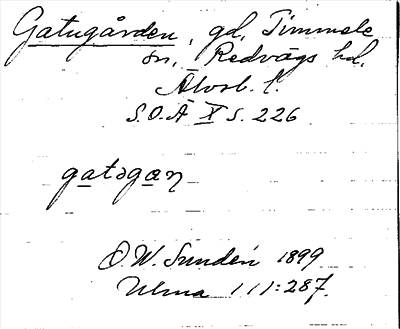 Gatugården, gd, Timmele
sn, Redvägs hd.
Älvsb. l.
S.O.Ä X s. 226
gatagan
D.W. Sundén 1899
Ulma 111:287.